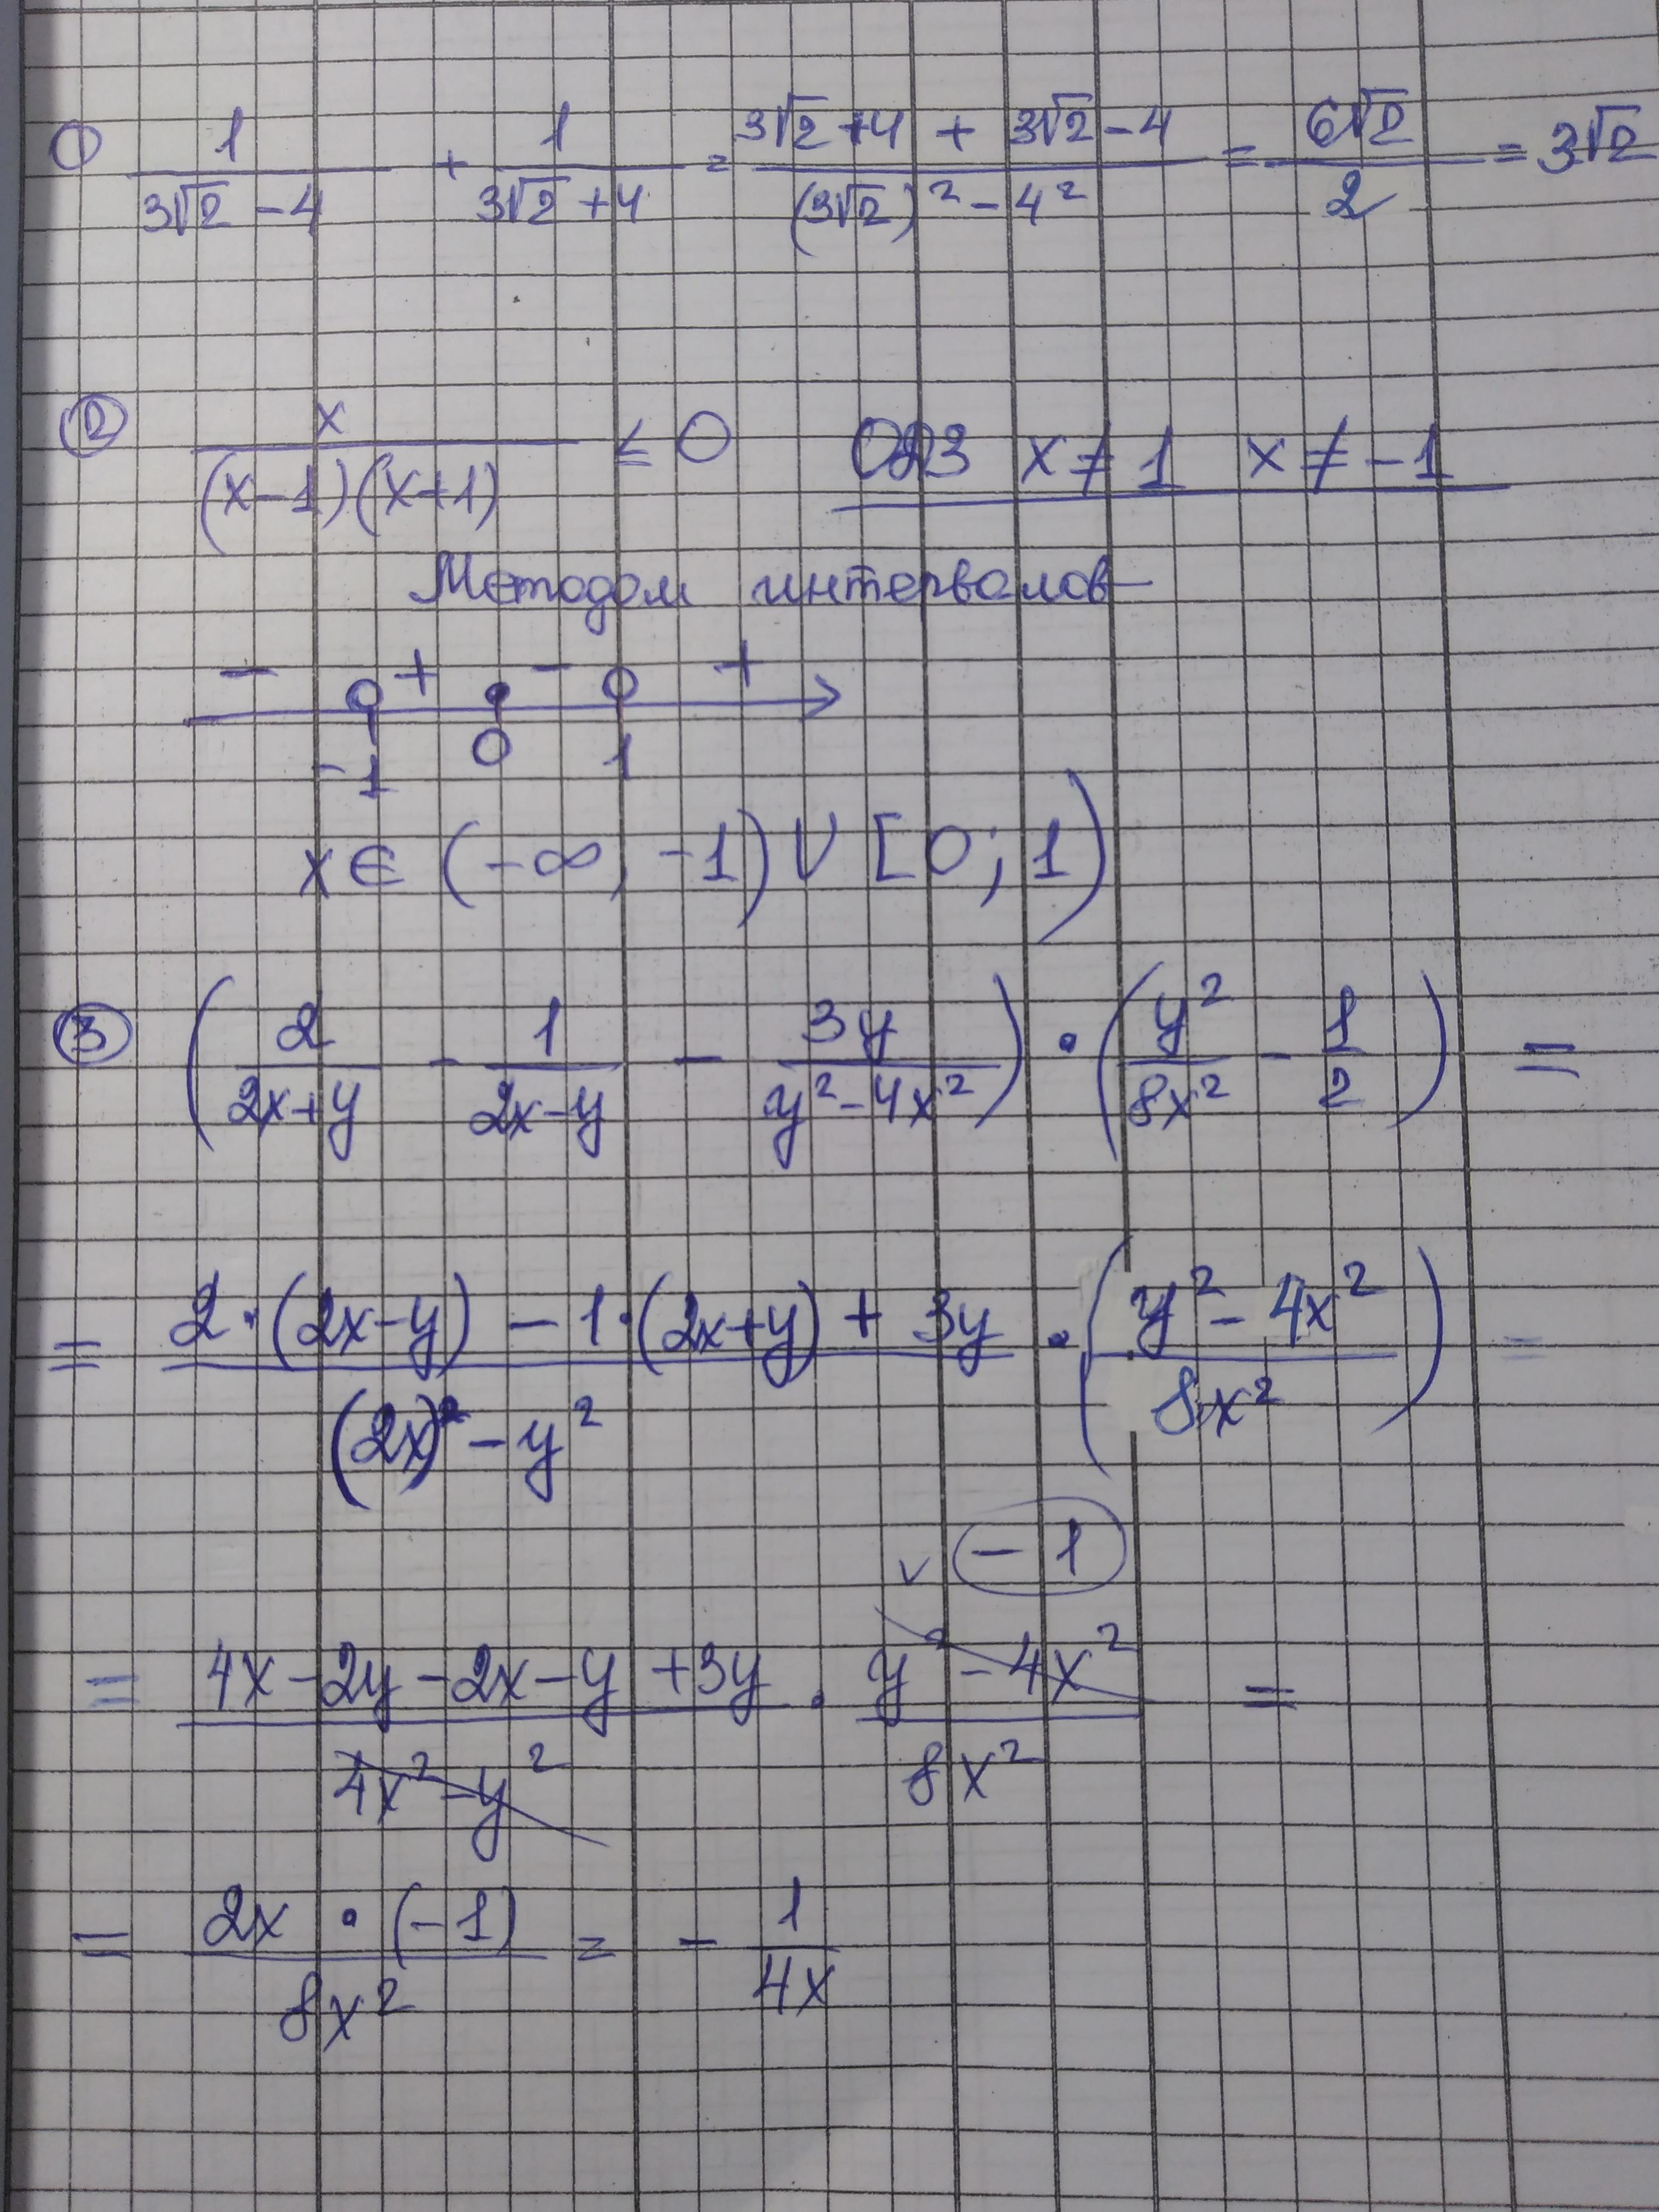 ① 1/(3√2 - 4) + 1/(3√2 + 4) = (3√2 + 4 + 3√2 - 4)/((3√2)² - 4²) = 6√2/2 = 3√2
② x/((x-1)(x+1)) ≤ 0 ОДЗ x ≠ 1 x ≠ -1
Методом интервалов
- + - +
-1 0 1
x ∈ (-∞, -1) ∪ [0; 1)
③ (2/(2x+y) - 1/(2x-y) - 3y/(y²-4x²)) · (y²/8x² - 1/2) =
= (2·(2x-y) - 1·(2x+y) + 3y)/((2x)² - y²) · ((y² - 4x²)/8x²) =
- 1
= (4x - 2y - 2x - y + 3y)/(4x² - y²) · (y² - 4x²)/8x² =
= (2x · (-1))/8x² = - 1/4x